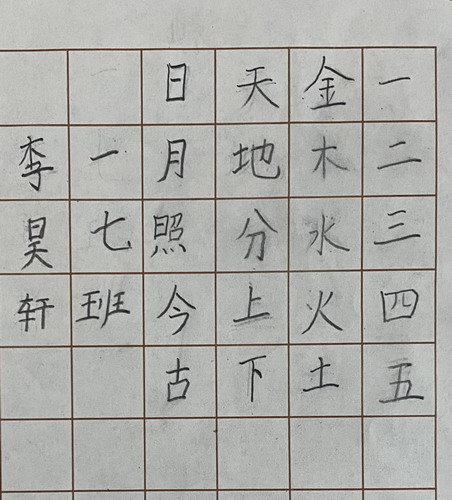 一二三四五
金木水火土
天地分上下
日月照今古
一七班
李昊轩